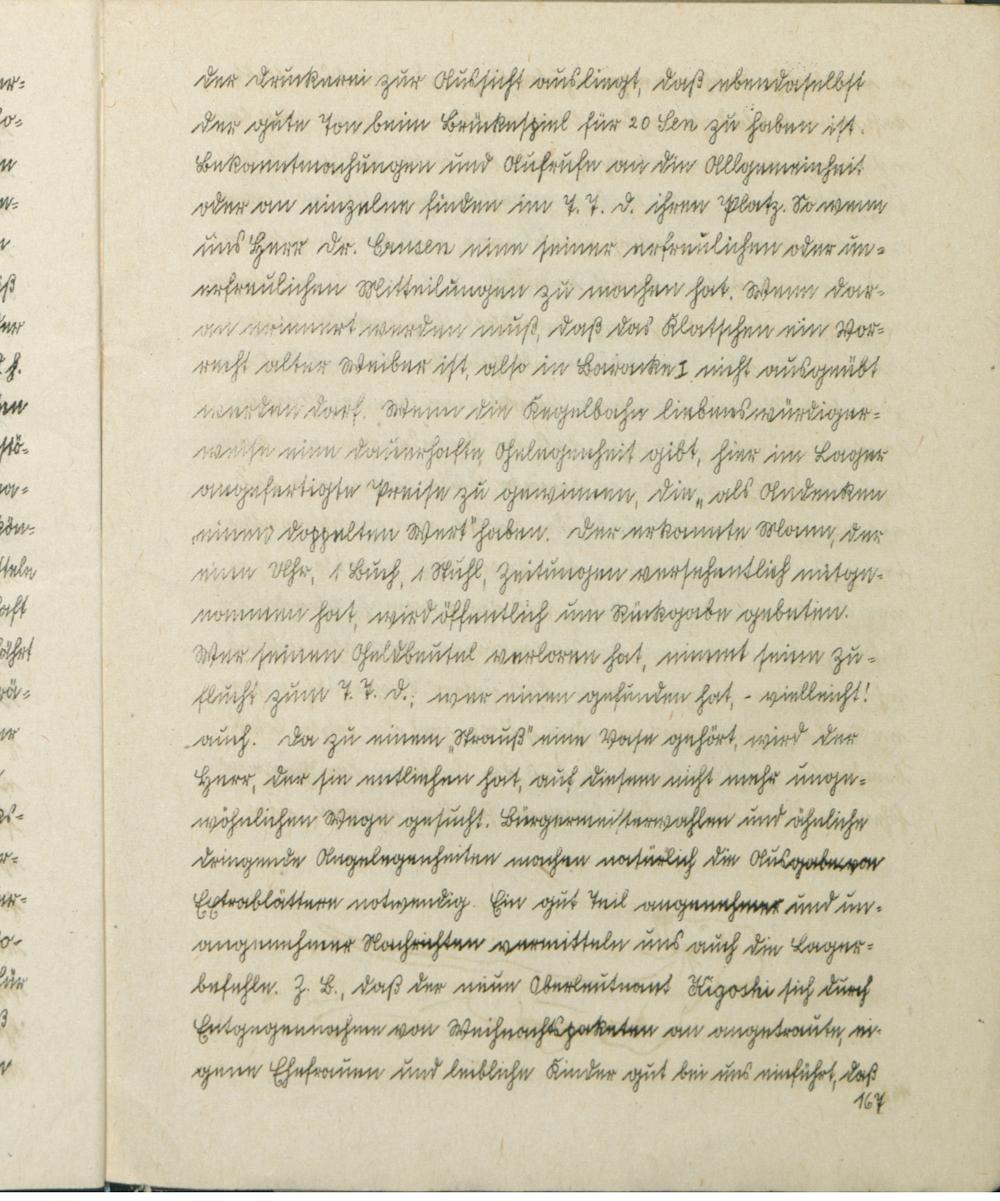 der Druckerei zur Aussicht ausliegt, daß ebendaselbst
der gute Ton beim Brückespiel für 20 Sen zu haben ist.
Bekanntmachungen und Aufrufe an die Allgemeinheit
oder an einzelne finden im T. T. D. ihren Platz. So wenn
uns Herr Dr. eine seiner erfreulichen oder un=
erfreulichen Mitteilungen zu machen hat. Wenn dar=
an erinnert werden muß, daß das Klatschen ein Vor=
recht alter Weiber ist, also in Baracke I nicht ausgeübt
werden darf. Wenn die Kegelbahn liebenswürdiger=
weise eine dauerhafte Gelegenheit gibt, hier im Lager
angefertigte Preise zu gewinnen, die „als Andenken
einen doppelten Wert" haben. Der erkannte Mann, der
eine Uhr, 1 Buch, 1 Stuhl, Zeitungen versehentlich mitge=
nommen hat, wird öffentlich um Rückgabe gebeten.
Wer seinen Geldbeutel verloren hat, nimmt seine Zu=
flucht zum T. T. D.; wer einen gefunden hat, - vielleicht!
auch. Da zu einem „Strauß" eine Vase gehört, wird der
Herr, der sie entliehen hat, auf diesem nicht mehr unge=
wöhnlichen Wege gesucht. Bürgermeisterwahlen und ähnliche
dringende Angelegenheiten machen natürlich die Ausgabe von
Extrablättern notwendig. Ein gut Teil angenehmer und un=
angenehmer Nachrichten vermitteln uns auch die Lager=
befehle. Z. B., daß der neue Oberleutnant sich durch
Entgegennahme von Weihnachtspaketen an angetraute, ei=
gene Ehefrauen und leibliche Kinder gut bei uns einführt, daß
167
er=
o=
n
iß
der
kön=
teln
aft
ährt
er
für